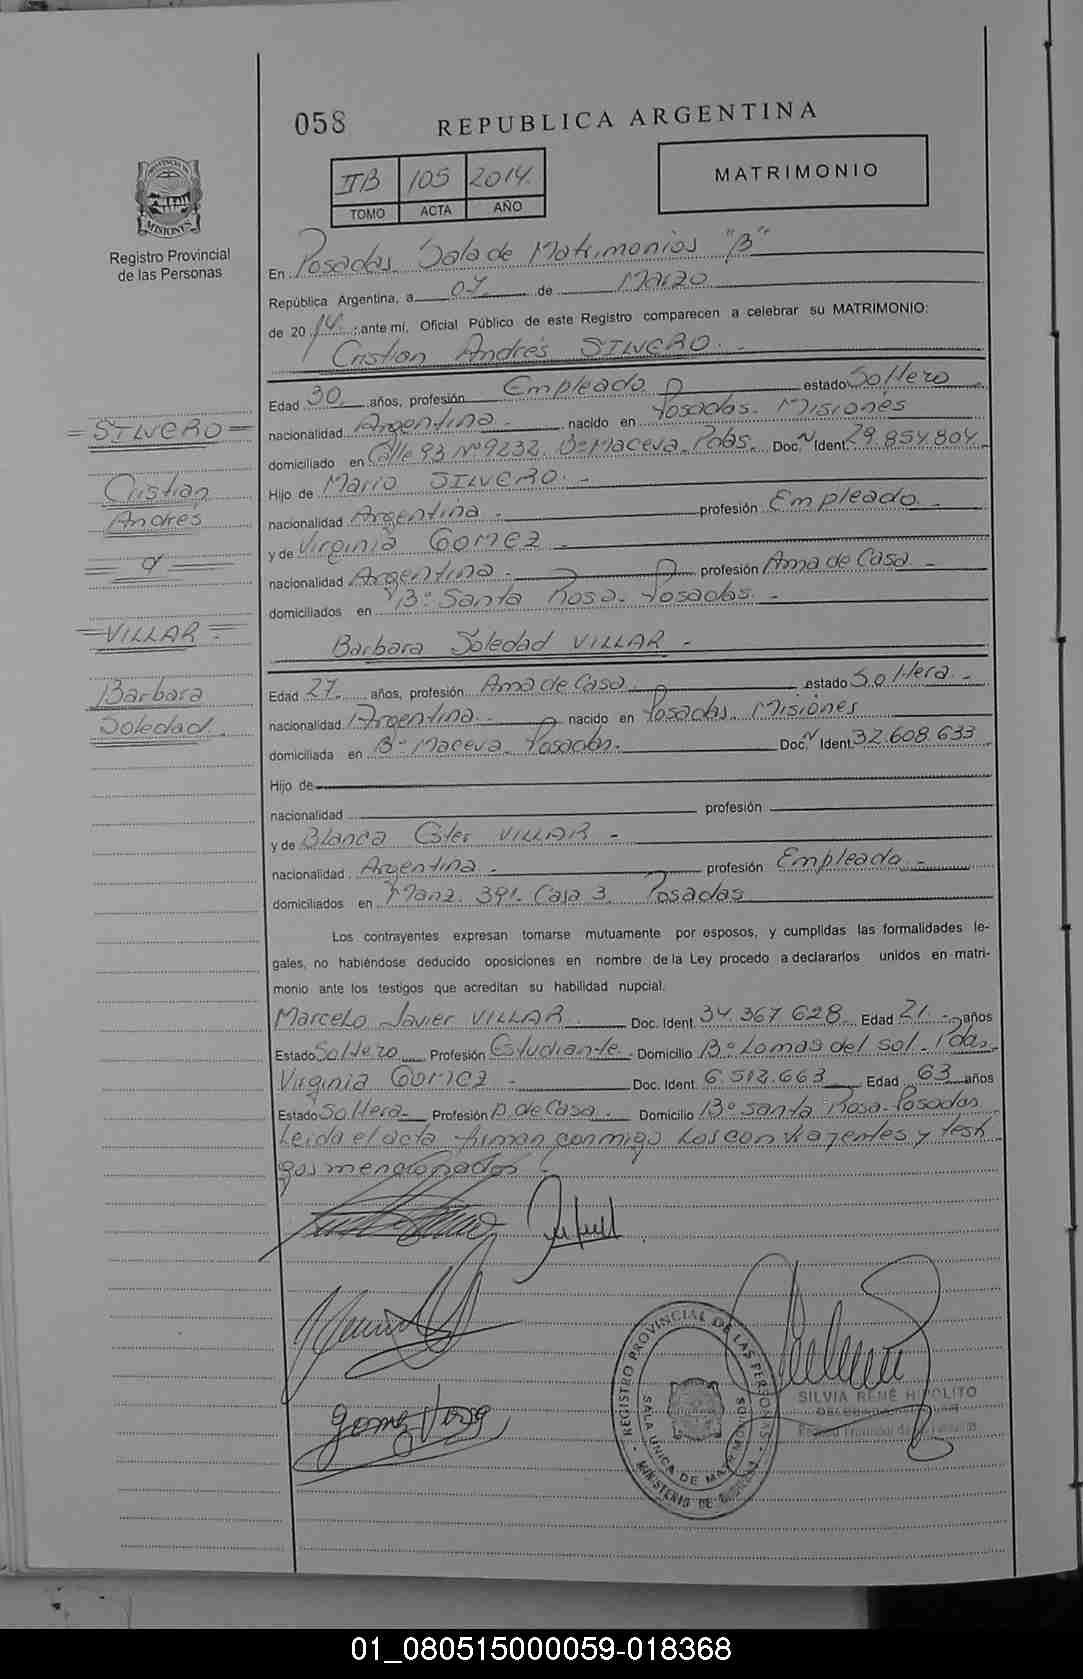 058
REPUBLICA ARGENTINA
IIB 105 2014.
TOMO ACTA AÑO
MATRIMONIO
PROVINCIA DE
MISIONES
Registro Provincial
de las Personas
En Posadas Sala de Matrimonios "B"
República Argentina, a 07 de Marzo
de 20 14 ; ante mí, Oficial Público de este Registro comparecen a celebrar su MATRIMONIO:
Cristian Andrés SILVERO. -
Edad 30 años, profesión Empleado estado Soltero
nacionalidad Argentina. nacido en Posadas. Misiones
domiciliado en Calle 93 Nº 9232. Bº Maceva. Pdas. Doc. N Ident. 29.854.804.
Hijo de Mario SILVERO. -
nacionalidad Argentina - profesión Empleado. -
y de Virginia GOMEZ -
nacionalidad Argentina. - profesión Ama de Casa -
domiciliados en Bº Santa Rosa. Posadas. -
Barbara Soledad VILLAR -
Edad 27. años, profesión Ama de Casa. estado Soltera. -
nacionalidad Argentina. - nacido en Posadas. Misiones
domiciliada en Bº Maceva. Posadas. Doc. N Ident. 32.608.633
Hijo de
nacionalidad profesión
y de Blanca Ester VILLAR -
nacionalidad Argentina. - profesión Empleada -
domiciliados en Manz. 391. Casa 3. Posadas
Los contrayentes expresan tomarse mutuamente por esposos, y cumplidas las formalidades le-
gales, no habiéndose deducido oposiciones en nombre de la Ley procedo a declararlos unidos en matri-
monio ante los testigos que acreditan su habilidad nupcial.
Marcelo Javier VILLAR Doc. Ident. 34.367.628 Edad 21. - años
Estado Soltero Profesión Estudiante. Domicilio Bº Lomas del Sol. Pdas.
Virginia GOMEZ - Doc. Ident. 6.512.663 Edad 63 años
Estado Soltera - Profesión A. de Casa. Domicilio Bº Santa Rosa. Posadas
Leida el acta firman conmigo los contrayentes y testi
gos mencionados
= SILVERO =
Cristian
Andrés
= VILLAR =
Barbara
Soledad
REGISTRO PROVINCIAL DE LAS PERSONAS
SALA UNICA DE MATRIMONIOS
MINISTERIO DE
SILVIA RENÉ HIPOLITO
01_080515000059-018368